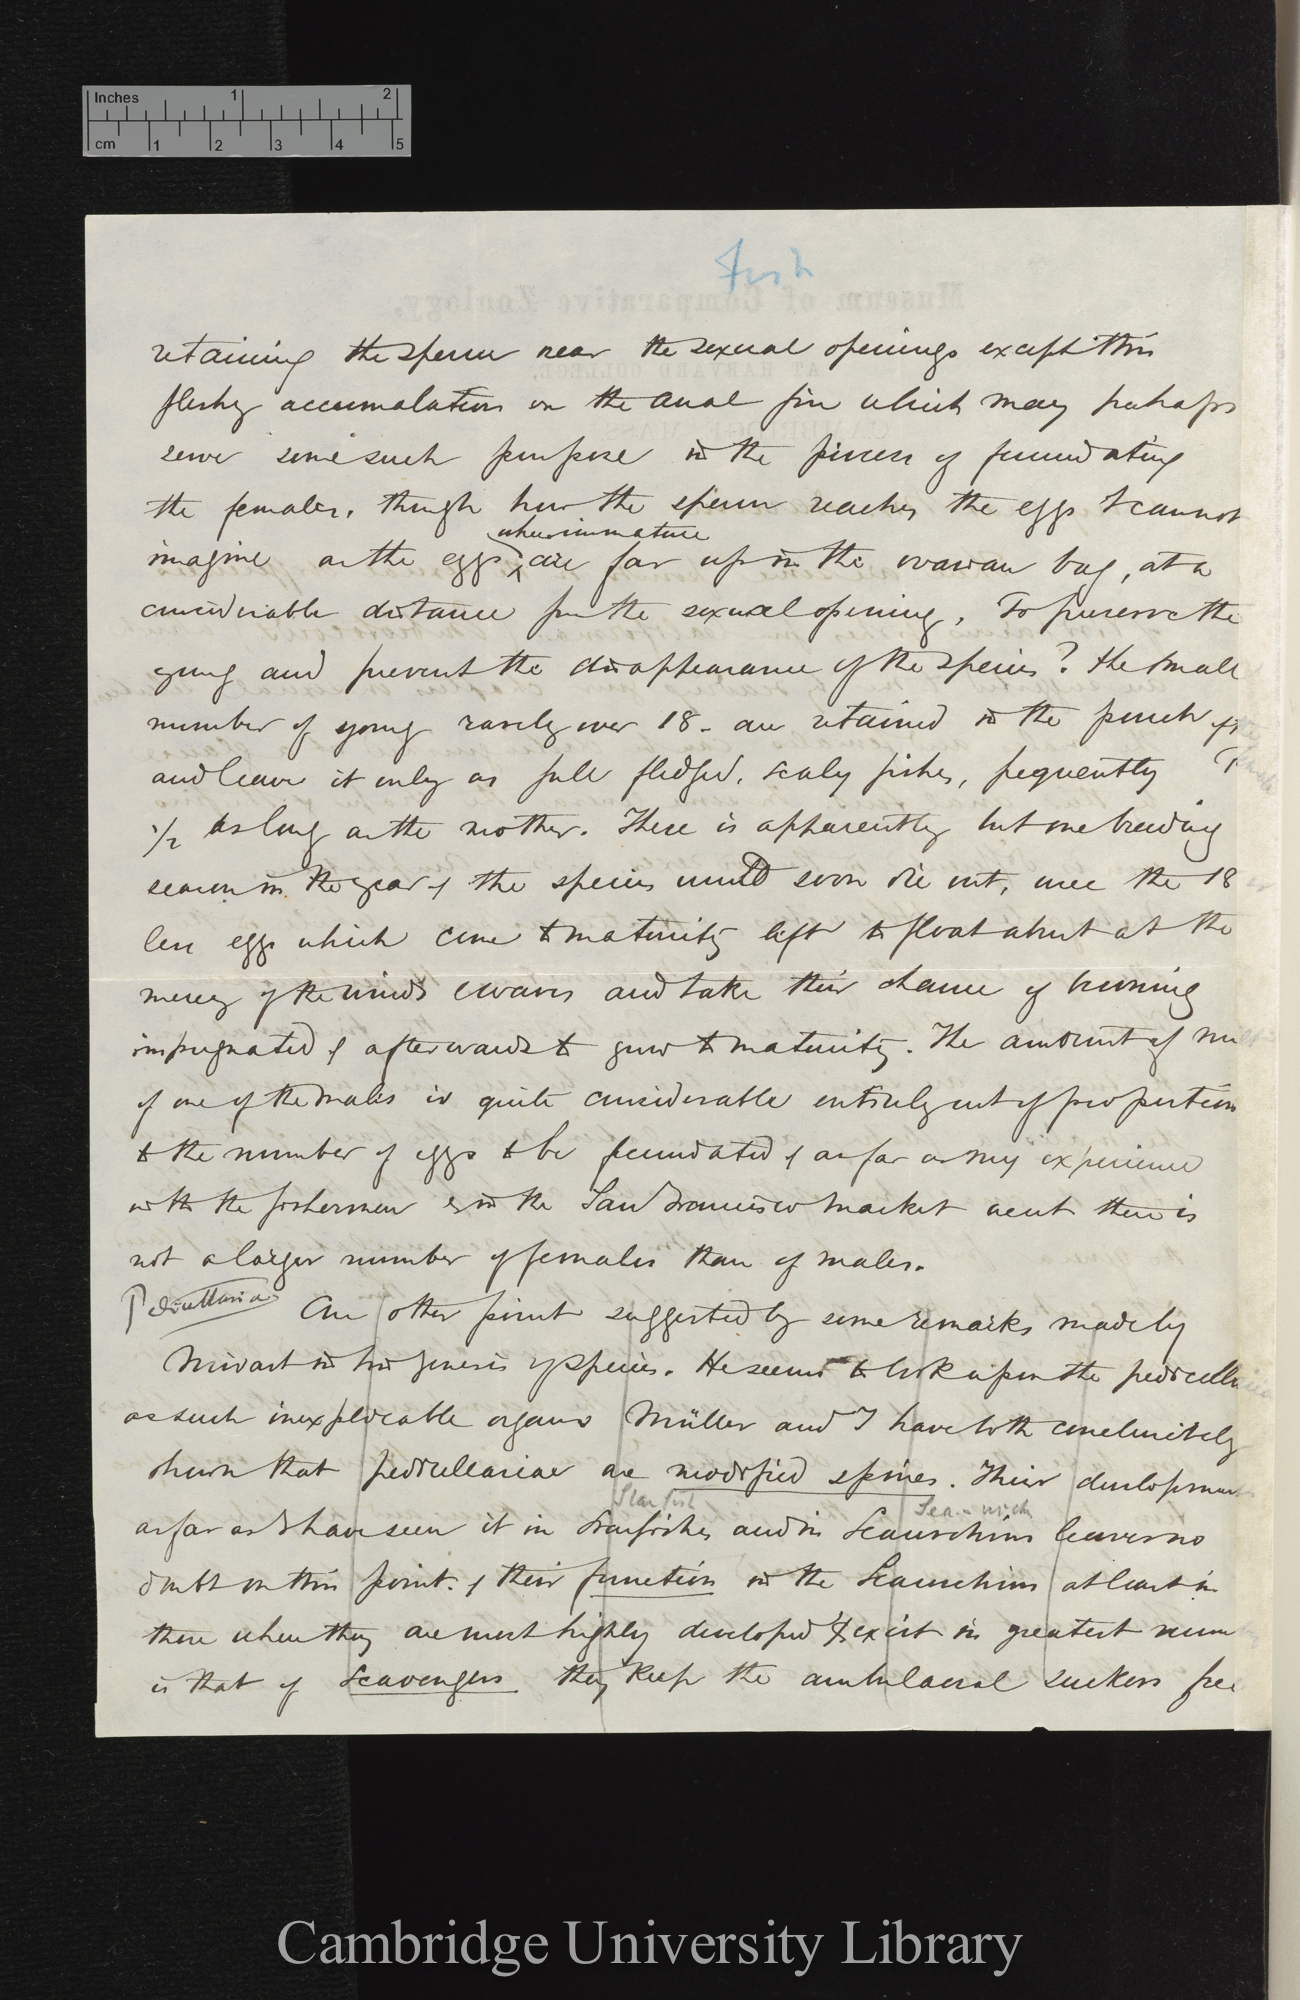 Inches 1 2
cm 1 2 3 4 5
Fish
Museum of Comparative Zoology,
AT HARVARD COLLEGE,
CAMBRIDGE, MASS.
retaining the sperm near the sexual openings except this
fleshy accumulation on the anal fin which may perhaps
serve some such purpose in the process of fecundating
the females, though how the sperm reaches the eggs I cannot
when immature
imagine as the eggs are far up in the ovarian bag, at a
considerable distance from the sexual opening. To preserve the
young and prevent the disappearance of the species? the small
number of young rarely over 18 - are retained in the pouch
and leave it only as full fledged, scaly fishes, frequently
1/2 as long as the mother. There is apparently but one breeding
season in the year & the species would soon die out, were the 18
less eggs which come to maturity left to float about at the
mercy of the winds & waves and take their chance of becoming
impregnated & afterwards to grow to maturity. The amount of
of one of the males is quite considerable entirely out of proportion
to the number of eggs to be fecundated & as far as my experience
with the fishermen & in the San Francisco market went there is
not a larger number of females than of males.
Pedicellaria An other point suggested by some remarks made by
Mivart in his genesis of species. He seems to look upon the pedicella
as such inexplicable organs Müller and I have both conclusively
shown that pedicellariae are modified spines. Their development
Starfish Sea-urchin
as far as I have seen it in Starfishes and in Seaurchins leaves no
doubt on this point. & their function in the Seaurchins at least in
those where they are most highly developed & exist in greatest num
is that of scavengers they keep the ambulacral suckers free
Cambridge University Library